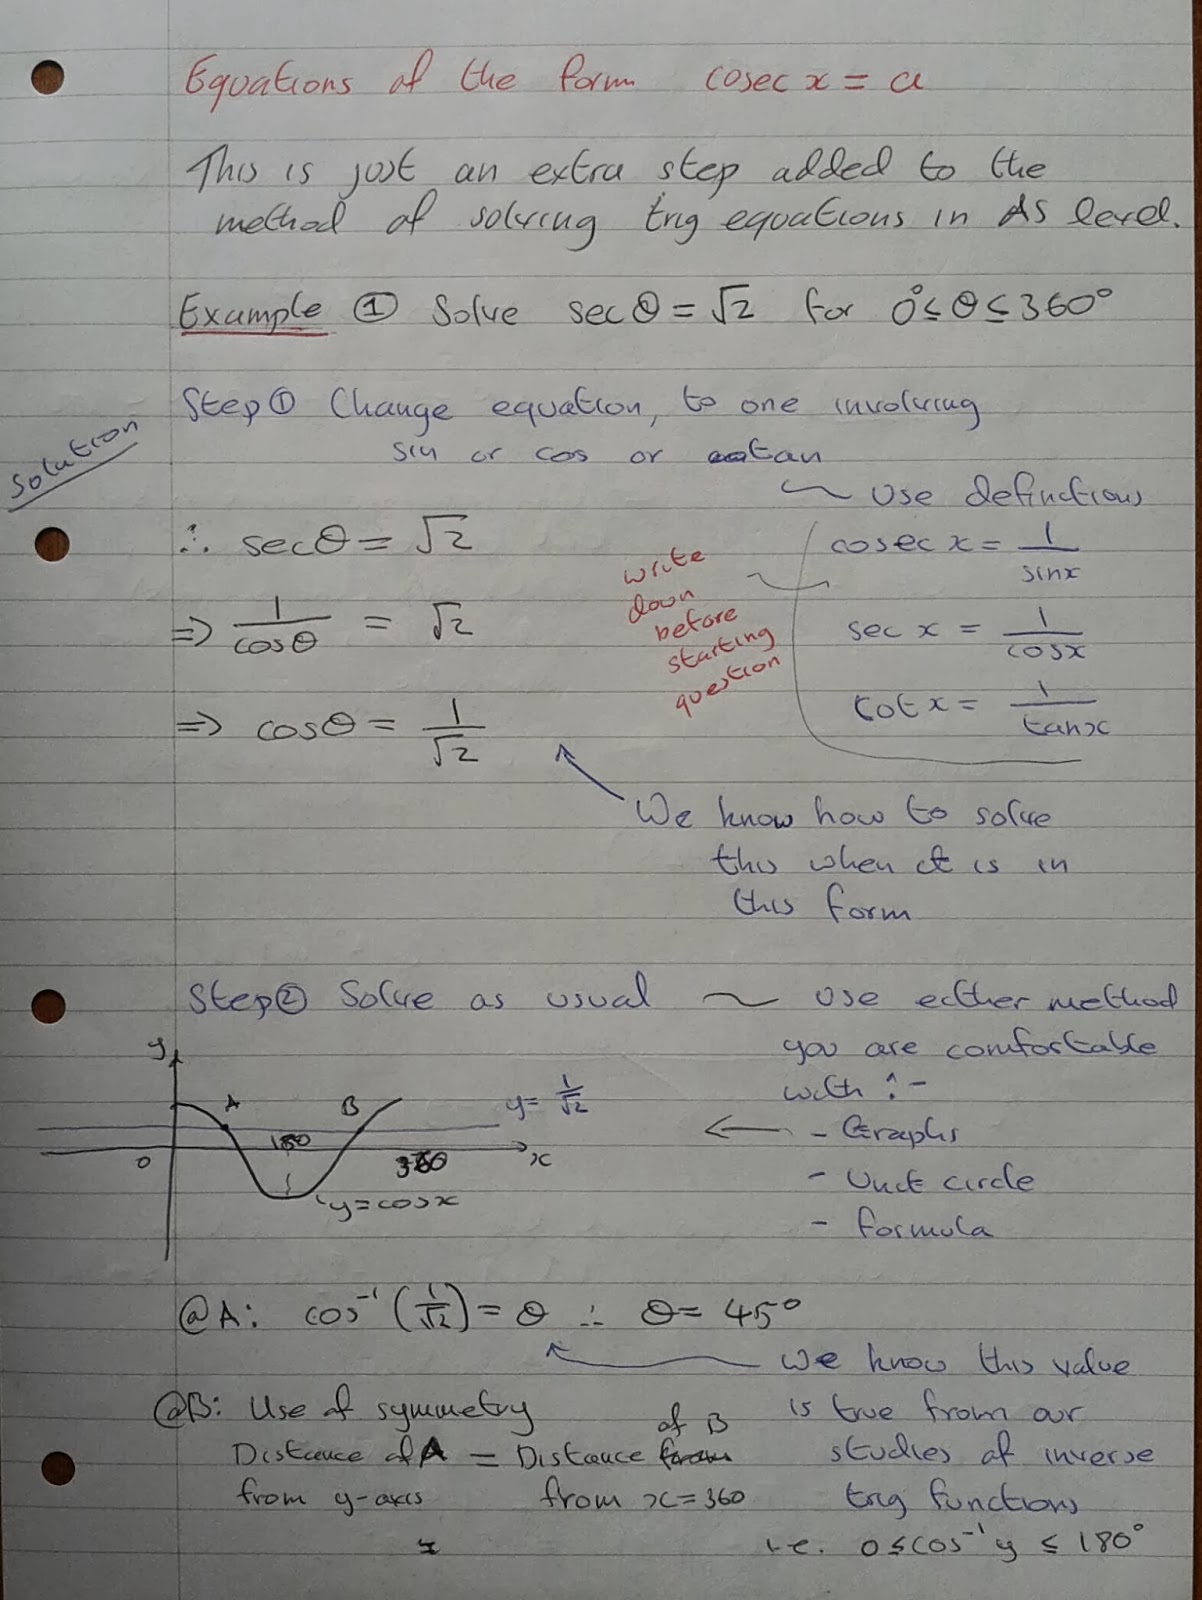 Equations of the form cosec x = a
This is just an extra step added to the
method of solving trig equations in AS level.
Example ① Solve sec θ = √2 for 0° ≤ θ ≤ 360°
Step ① Change equation, to one involving
sin or cos or tan
Solution
~ Use definitions
∴ sec θ = √2
⇒ 1/cos θ = √2
⇒ cos θ = 1/√2
write
down
before
starting
question
cosec x = 1/sin x
sec x = 1/cos x
cot x = 1/tan x
We know how to solve
this when it is in
this form
Step ② Solve as usual ~ Use either method
you are comfortable
with :-
- Graphs
- Unit circle
- formula
y
A
B
y = 1/√2
180
0
360
x
y = cos x
@A: cos⁻¹(1/√2) = θ ∴ θ = 45°
We know this value
is true from our
studies of inverse
trig functions
i.e. 0 ≤ cos⁻¹ y ≤ 180°
@B: Use of symmetry
Distance of A = Distance of B
from y-axis from x = 360